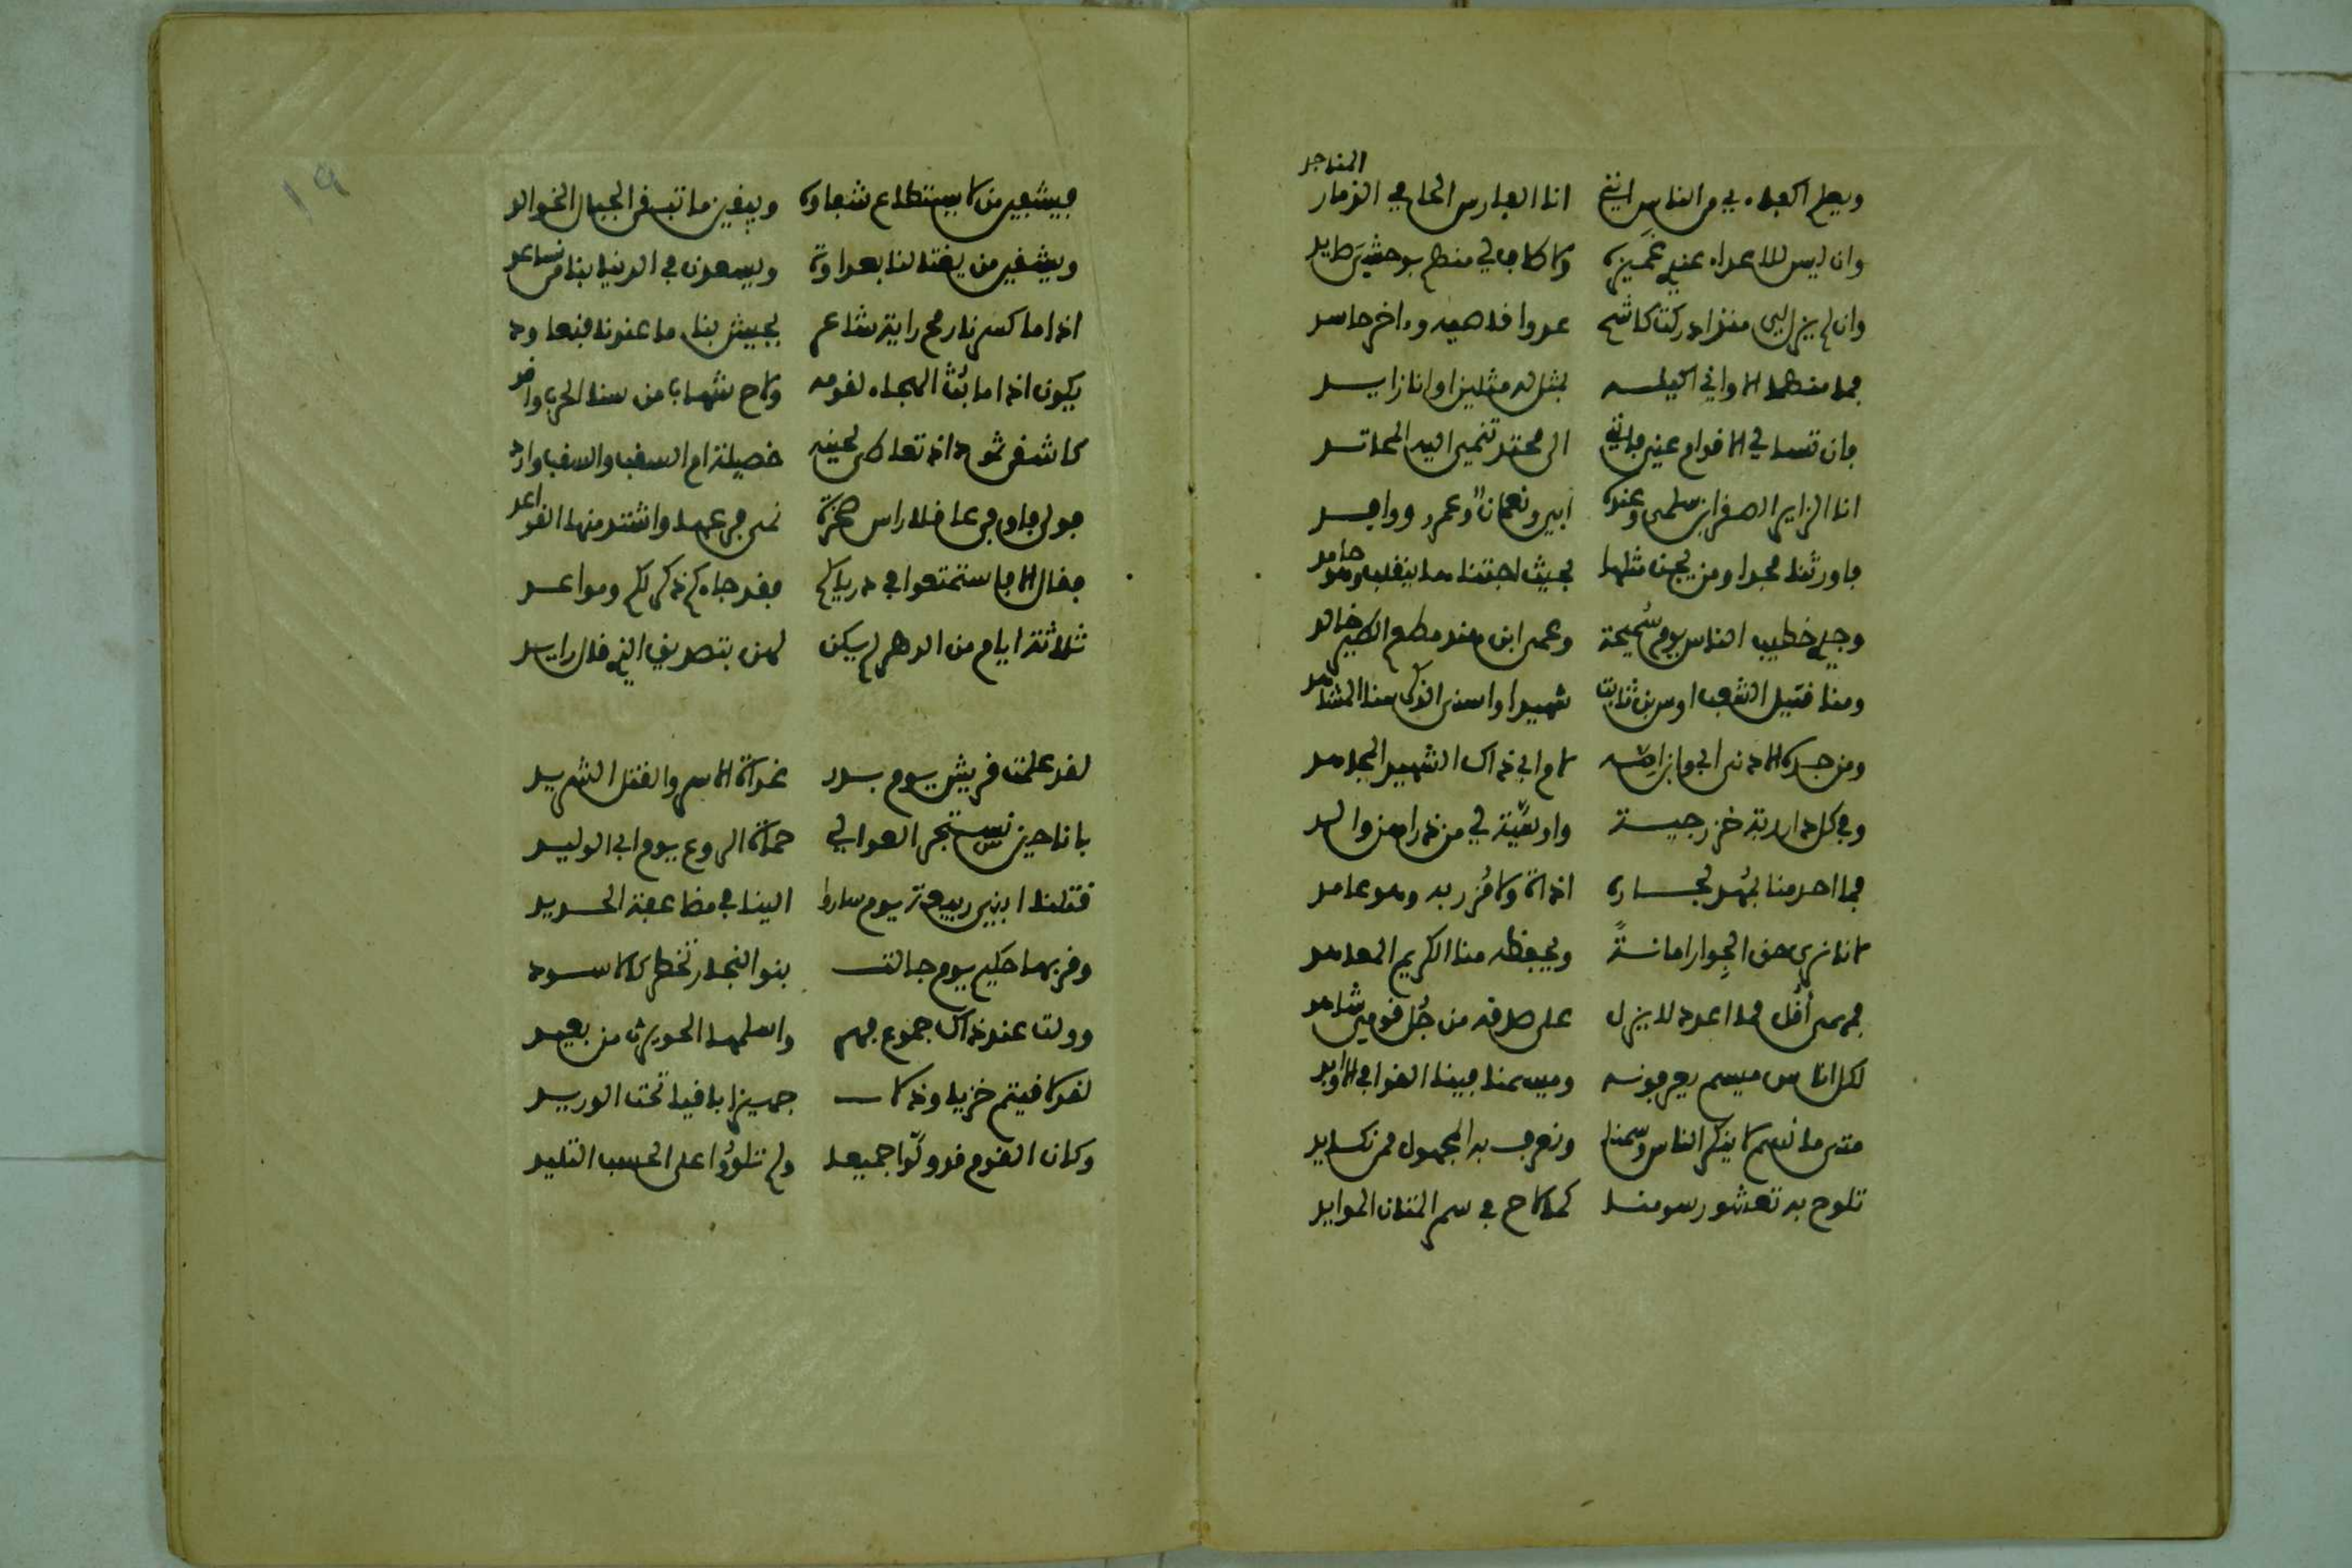 المناجد
ويعلم اكفاءي من الناس انني انا الفارس الحامي الذمار
وان ليس للاعداء عندي غميزة ولا طاف لي منهم بوحشي طايد
وان لم يزل لي منذ ادركت كاشح عدوا قاسيه واخر حاسد
فما منهما الا واني اكيله بمثل له مثلين او انا زايد
فان تسالي الاقوام عني فانني الى محتد تنمي اليه المحاتد
انا الزاير الصقر ابن سلمى وعنده ابي ونعمان وعمرو ووافد
فاورثنا مجدا ومن يجن مثلها بحيث اجتناها ينقلب وهو حامد
وجدي خطيب الناس يوم سميحة وعمي ابن هند مطعم الطير خالد
ومنا قتيل الشعب اوس بن ثابت شهيدا واسنى الذكر منا المشاهد
ومن جده الادنى ابي وابن امه لام ابي ذاك الشهيد المجاهد
وفي كل دار ربة خزرجية واوسية لي من ذراهن والد
فما احد منا بمهد لجاره اذاة ولا مزر به وهو عامد
لانا نرى حق الجوار امانة ويحفظه منا الكريم المعاهد
فمهما اقل مما اعدد لا يزل على صدقه من جل قومي شاهد
لكل اناس ميسم يعرفونه وميسمنا فينا القوافي الاوابد
متى ما نسم لا ينكر الناس وسمنا ونعرف به المجهول ممن نكايد
تلوح به تعشو رسومنا كما لاح في سم المتان الموارد
فيشفين من لا يستطاع شفاوه ويبقين ما تبقى الجبال الخوالد
ويشفين من يغتالنا بعداوة ويسعدن في الدنيا بنا من نساعد
اذا ما كسرنا رمح راية شاعر يجيش بنا ما عندنا فنعاود
يكون اذا ما بث الهجاء لقومه ولاح شهاب من سنا الحرب واقد
كاشقى ثمود اذ تعاطى لحينه خصيلة ام السقب والسقب وارد
فولى فاوفى عاقلا راس صخرة نمى فرعها واشتد منها القواعد
فقال الا فاستمتعوا في دياركم فقد جاءكم ذكر لكم ومواعد
ثلاثة ايام من الدهر لم يكن لهن بتصديق الذي قال رايد
لقد علمت قريش يوم بدر غداة الاسر والقتل الشديد
بانا حين تستجر العوالي حماة الروع يوم ابي الوليد
قتلنا ابني ربيعة يوم ساروا الينا في مضاعفة الحديد
وفر بها حكيم يوم جالت بنو النجار تخطر كالاسود
وولت عند ذاك جموع فهر واسلمها الحويرث من بعيد
لقد لاقيتم خزيا وذلا جهيزا باقيا تحت الوريد
وكان القوم قد ولوا جميعا ولم تلووا على الحسب التليد
١٩